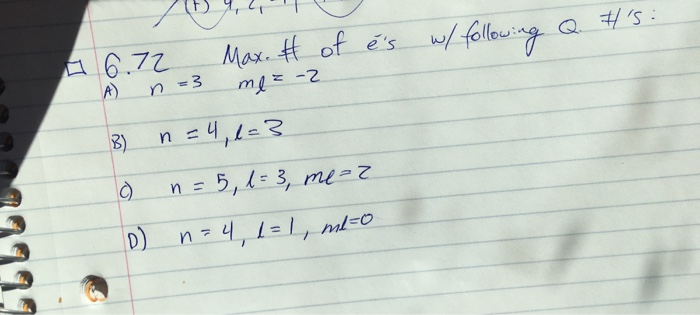 6.72 Max. # of é's w/ following Q. #'s:
A) n = 3 ml = -2
B) n = 4, l = 3
C) n = 5, l = 3, ml = 2
D) n = 4, l = 1, ml = 0